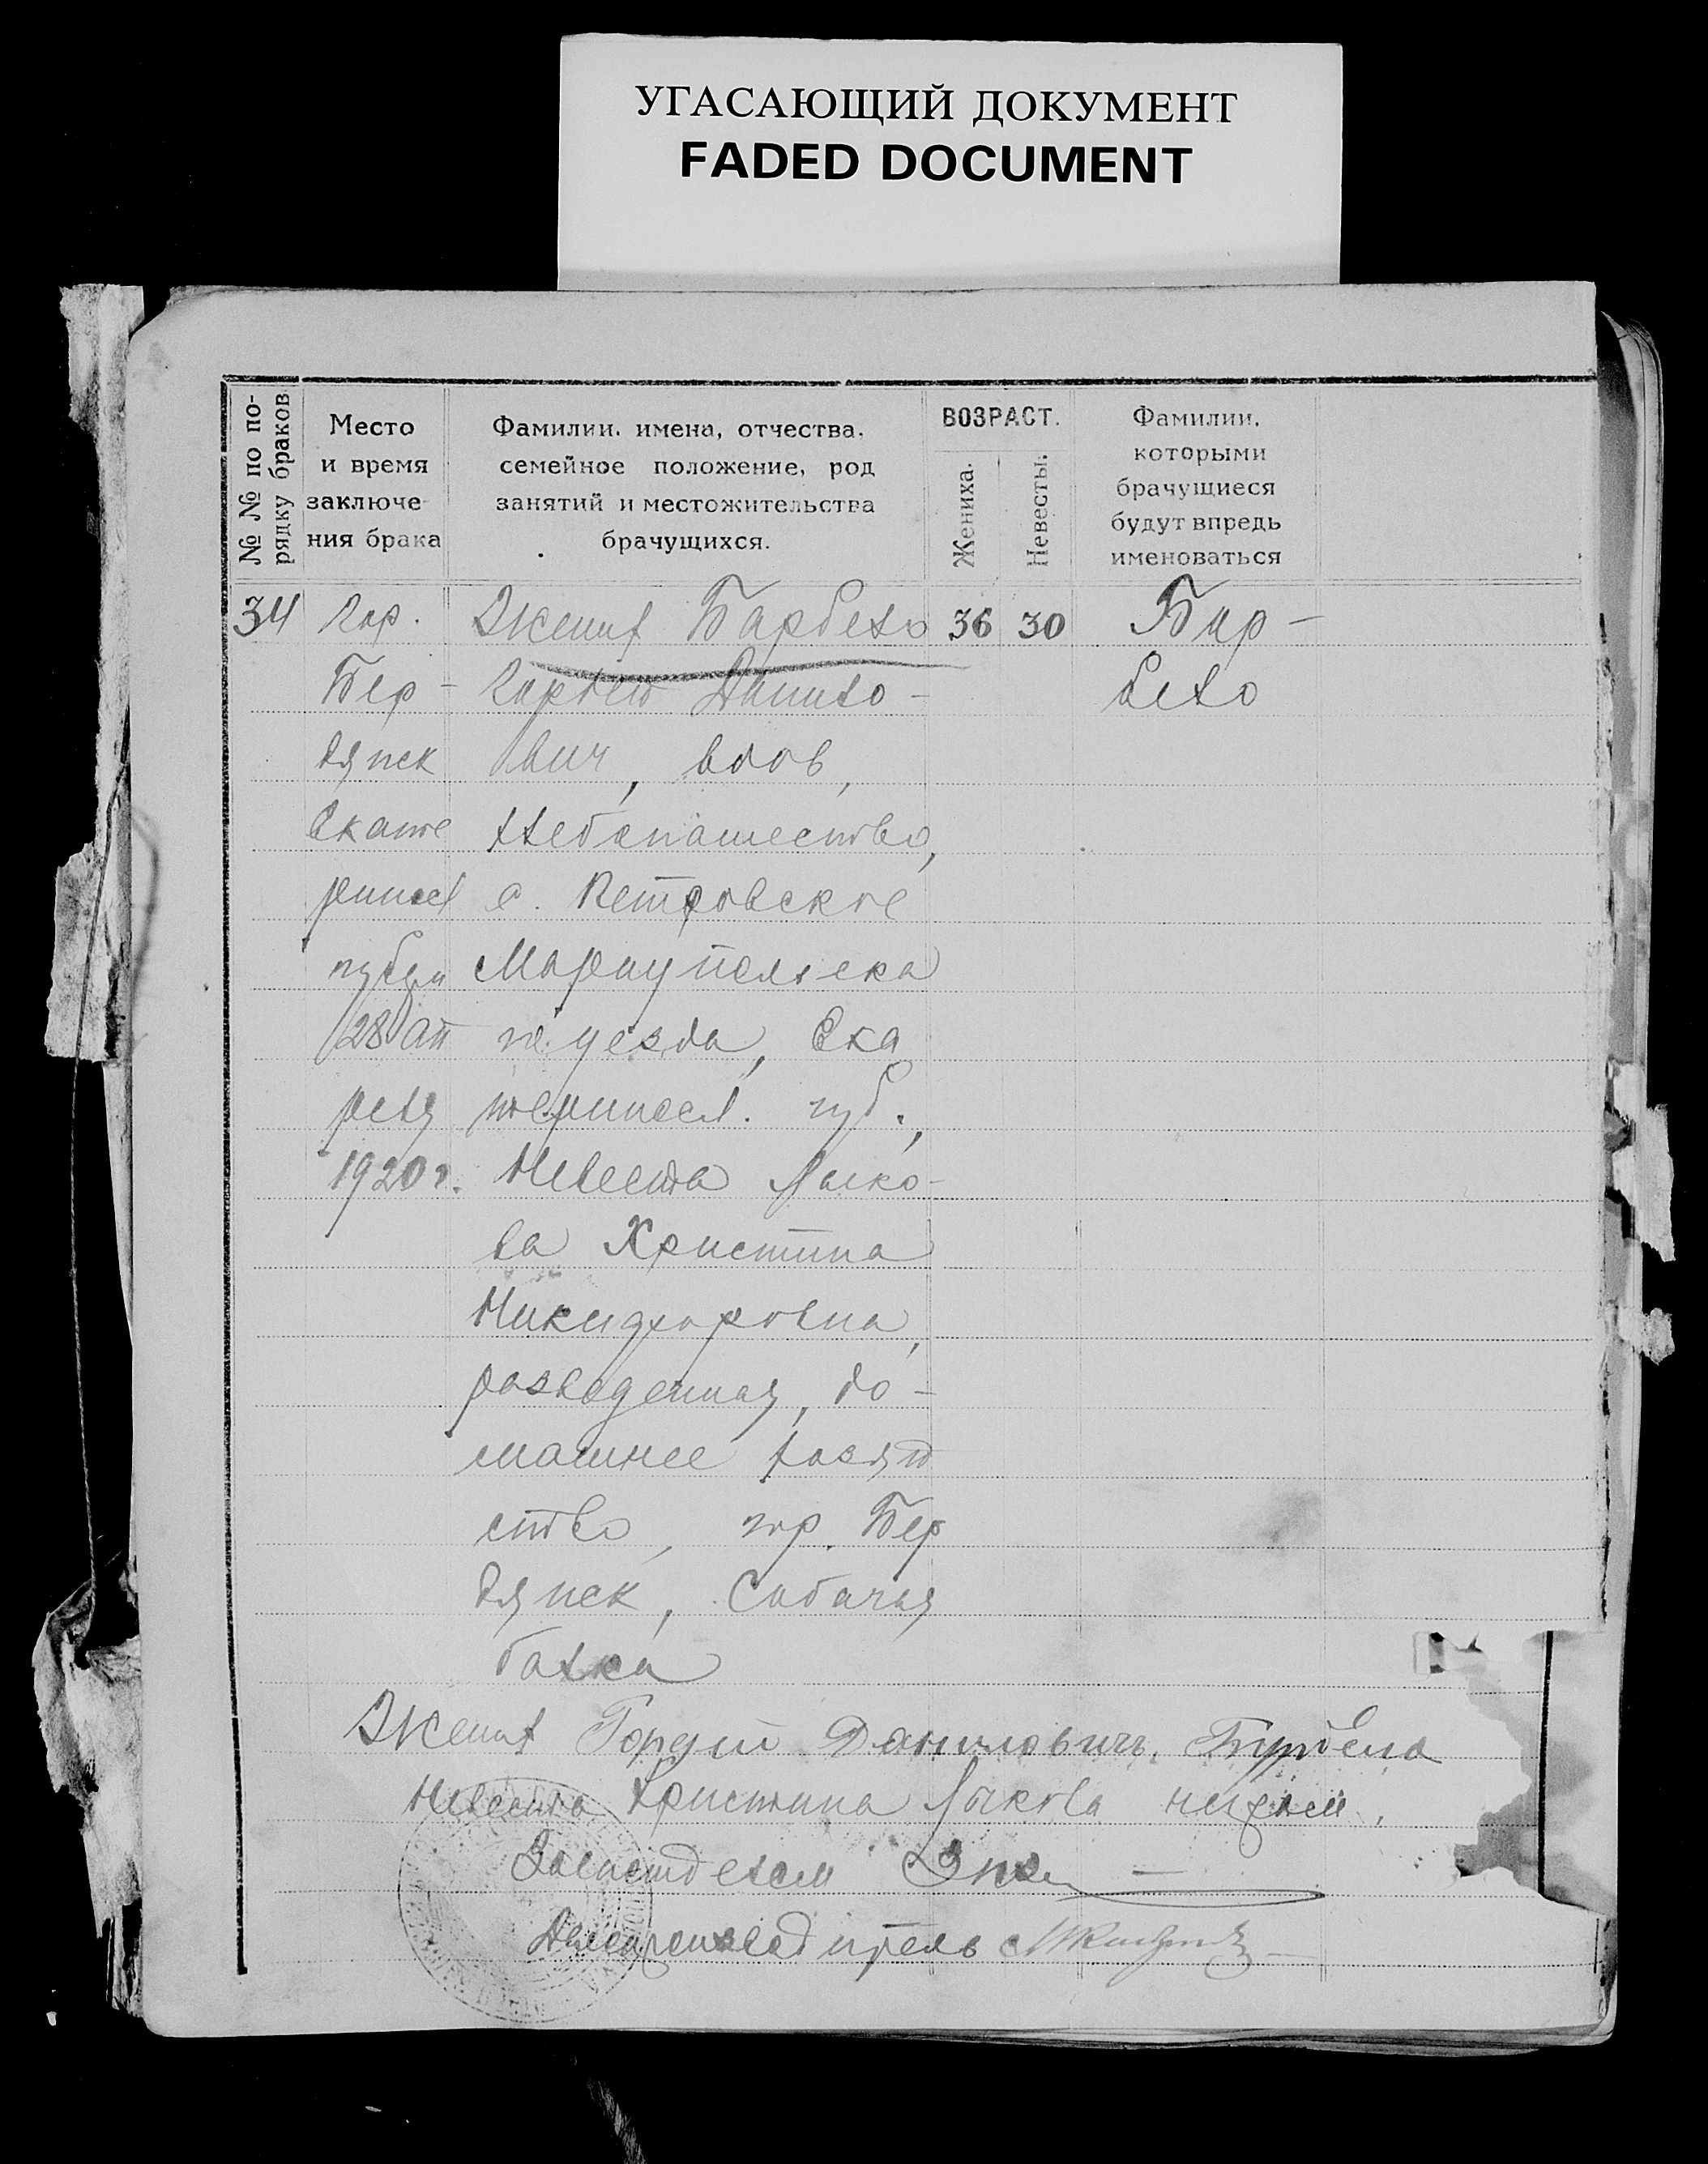 УГАСАЮЩИЙ ДОКУМЕНТ
FADED DOCUMENT
№ № по по-
рядку браков
Место
и время
заключе-
ния брака
Фамилии, имена, отчества,
семейное положение, род
занятий и местожительства
брачущихся.
ВОЗРАСТ.
Жениха.
Невесты.
Фамилии,
которыми
брачущиеся
будут впредь
именоваться
34
Гор.
Бер-
дянск
Екате
ринсл
губерн
28 Ап
реля
1920 г.
Жених Барбело
Гордей Данило-
вич, вдов,
хлебопашество,
с. Петровское
Мариупольска
го уезда, Ека
теринсл. губ.,
Невеста Лыко-
ва Христина
Никифоровна,
разведенная, до-
машнее хозяй
ство, гор. Бер
дянск, Собачья
балка
36
30
Бар-
бело
Жених Гордий Даниловичъ
Невеста Христина Лыкова
Завотделом
Делопроизводитель